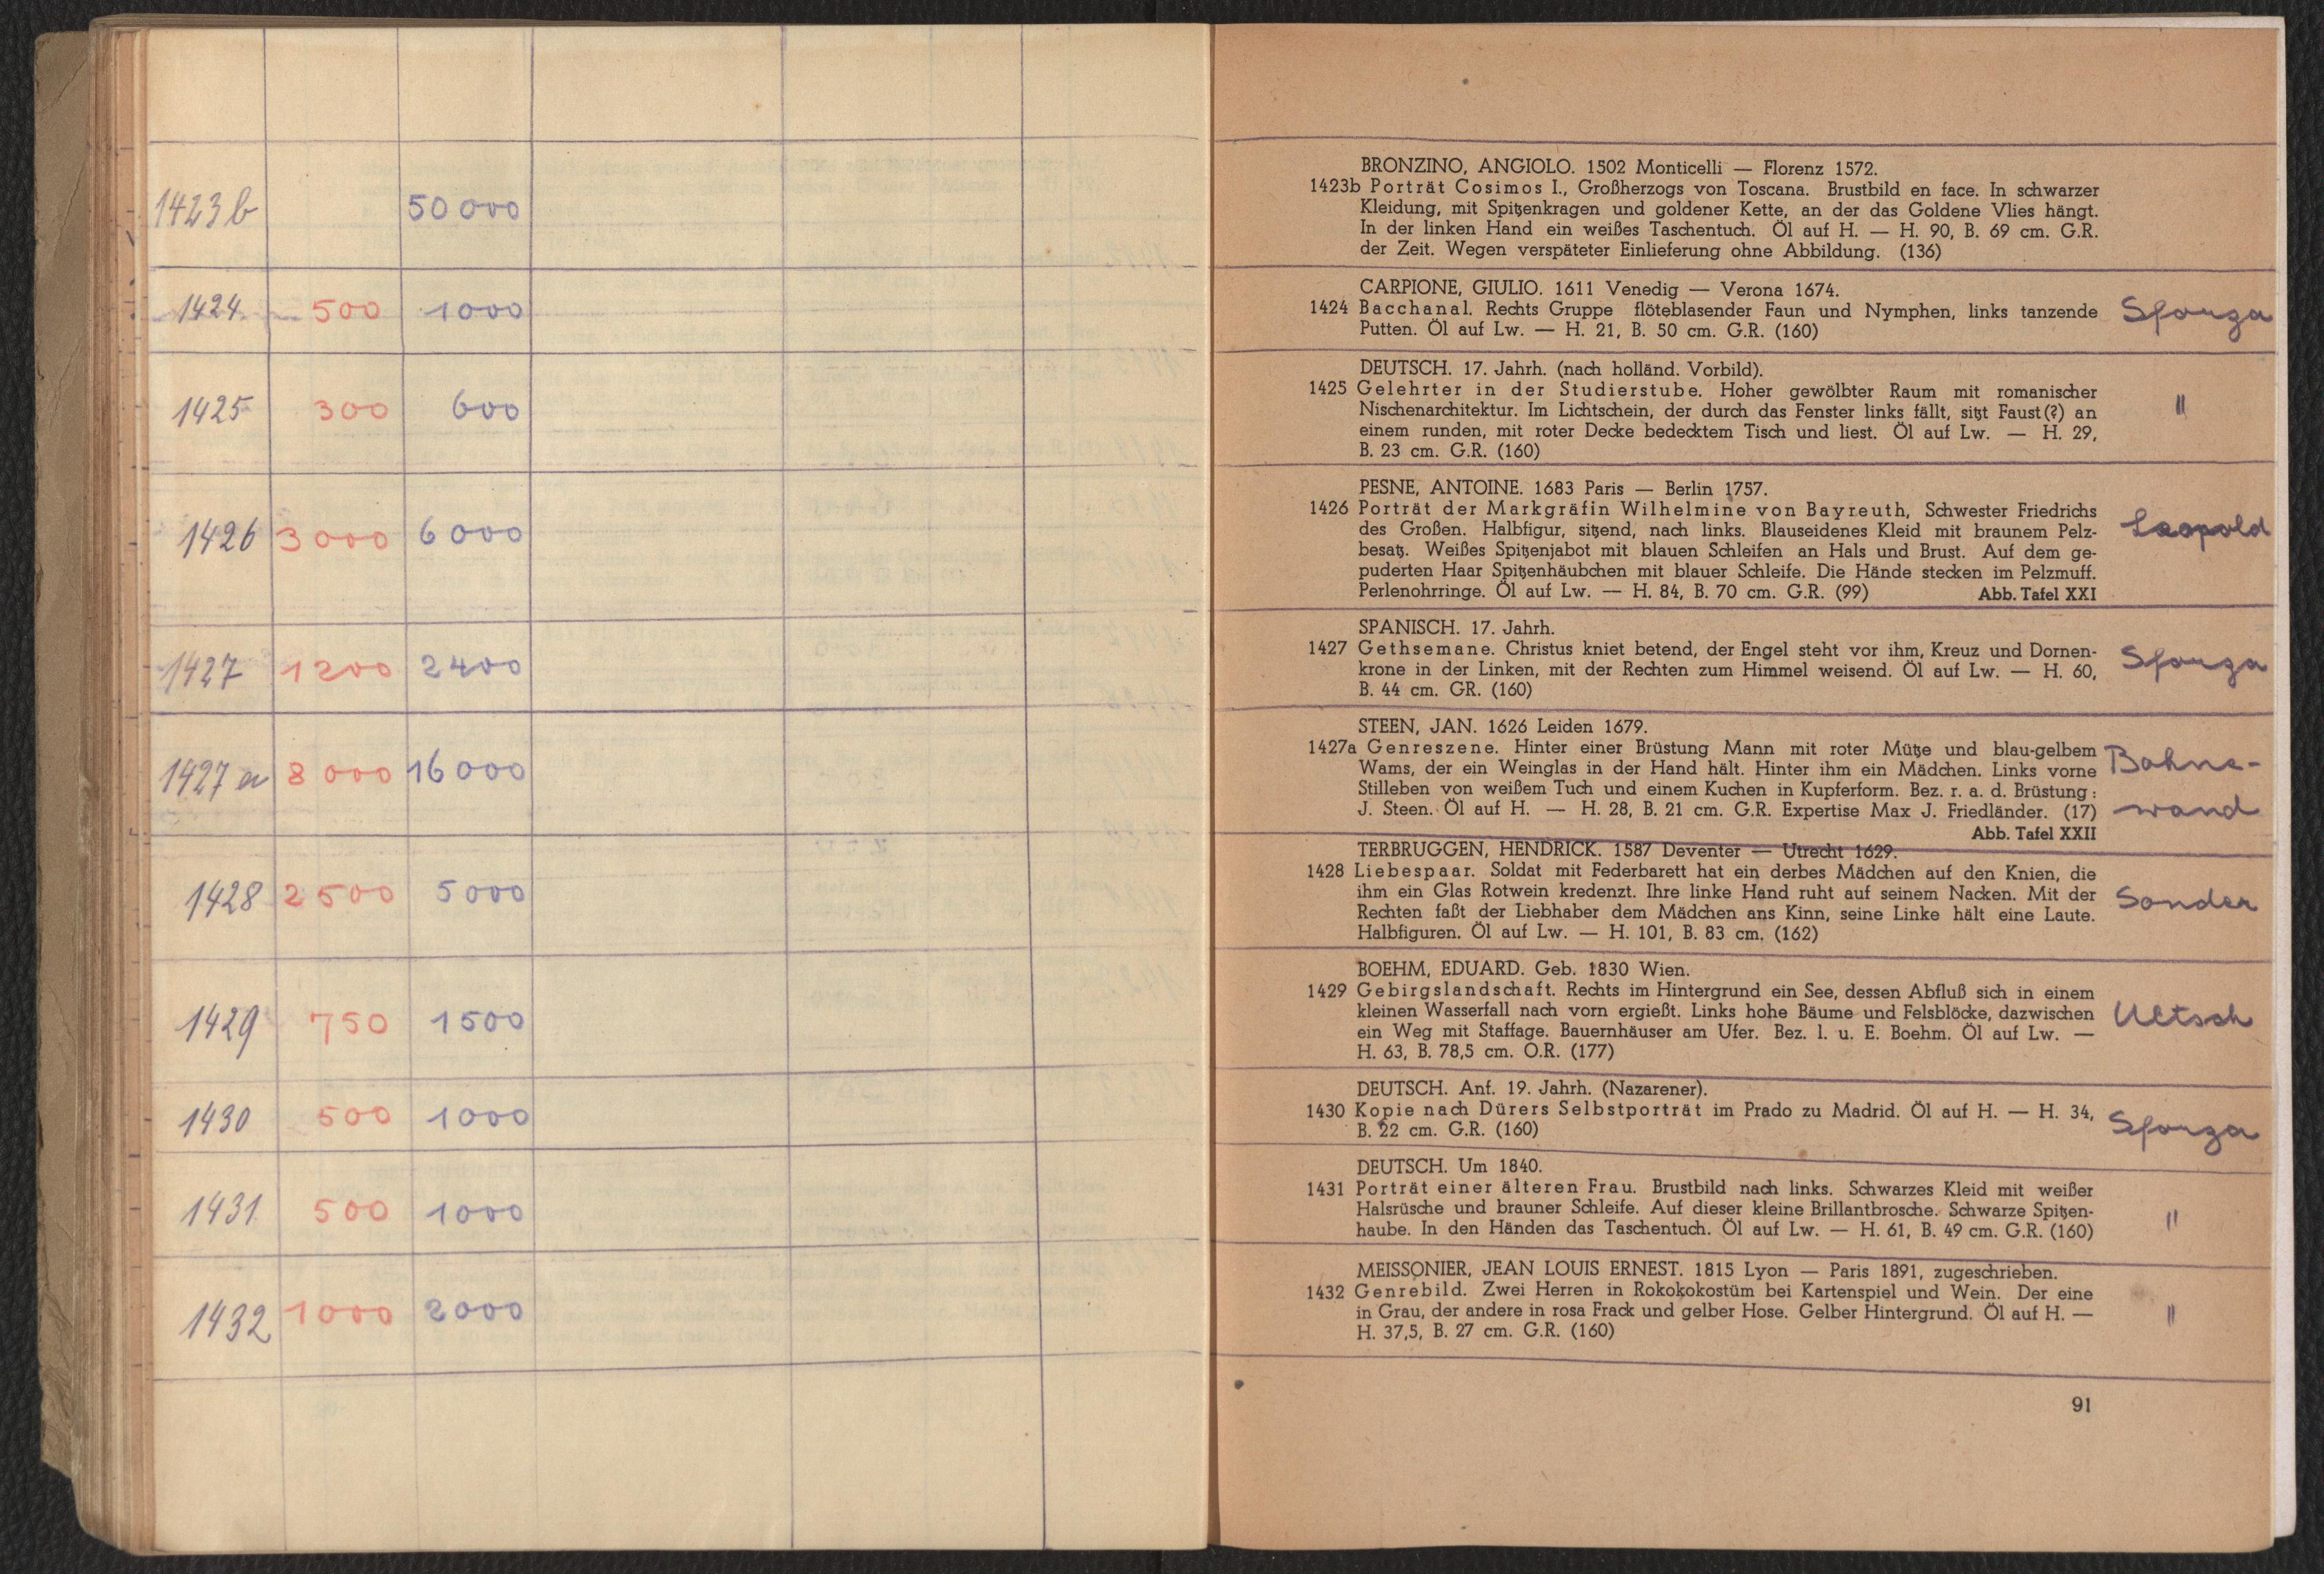 1423b 50000
1424 500 1000
1425 300 600
1426 3000 6000
1427 1200 2400
1427a 8000 16000
1428 2500 5000
1429 750 1500
1430 500 1000
1431 500 1000
1432 1000 2000
BRONZINO, ANGIOLO. 1502 Monticelli — Florenz 1572.
1423b Porträt Cosimos I., Großherzogs von Toscana. Brustbild en face. In schwarzer
Kleidung, mit Spitzenkragen und goldener Kette, an der das Goldene Vlies hängt.
In der linken Hand ein weißes Taschentuch. Öl auf H. — H. 90, B. 69 cm. G.R.
der Zeit. Wegen verspäteter Einlieferung ohne Abbildung. (136)
CARPIONE, GIULIO. 1611 Venedig — Verona 1674.
1424 Bacchanal. Rechts Gruppe flöteblasender Faun und Nymphen, links tanzende
Putten. Öl auf Lw. — H. 21, B. 50 cm. G.R. (160)
Sforza
DEUTSCH. 17. Jahrh. (nach holländ. Vorbild).
1425 Gelehrter in der Studierstube. Hoher gewölbter Raum mit romanischer
Nischenarchitektur. Im Lichtschein, der durch das Fenster links fällt, sitzt Faust(?) an
einem runden, mit roter Decke bedecktem Tisch und liest. Öl auf Lw. — H. 29,
B. 23 cm. G.R. (160)
"
PESNE, ANTOINE. 1683 Paris — Berlin 1757.
1426 Porträt der Markgräfin Wilhelmine von Bayreuth, Schwester Friedrichs
des Großen. Halbfigur, sitzend, nach links. Blauseidenes Kleid mit braunem Pelz-
besatz. Weißes Spitzenjabot mit blauen Schleifen an Hals und Brust. Auf dem ge-
puderten Haar Spitzenhäubchen mit blauer Schleife. Die Hände stecken im Pelzmuff.
Perlenohrringe. Öl auf Lw. — H. 84, B. 70 cm. G.R. (99) Abb. Tafel XXI
Leopold
SPANISCH. 17. Jahrh.
1427 Gethsemane. Christus kniet betend, der Engel steht vor ihm, Kreuz und Dornen-
krone in der Linken, mit der Rechten zum Himmel weisend. Öl auf Lw. — H. 60,
B. 44 cm. GR. (160)
Sforza
STEEN, JAN. 1626 Leiden 1679.
1427a Genreszene. Hinter einer Brüstung Mann mit roter Mütze und blau-gelbem
Wams, der ein Weinglas in der Hand hält. Hinter ihm ein Mädchen. Links vorne
Stilleben von weißem Tuch und einem Kuchen in Kupferform. Bez. r. a. d. Brüstung:
J. Steen. Öl auf H. — H. 28, B. 21 cm. G.R. Expertise Max J. Friedländer. (17)
Abb. Tafel XXII
Bohne-
wand
TERBRUGGEN, HENDRICK. 1587 Deventer — Utrecht 1629.
1428 Liebespaar. Soldat mit Federbarett hat ein derbes Mädchen auf den Knien, die
ihm ein Glas Rotwein kredenzt. Ihre linke Hand ruht auf seinem Nacken. Mit der
Rechten faßt der Liebhaber dem Mädchen ans Kinn, seine Linke hält eine Laute.
Halbfiguren. Öl auf Lw. — H. 101, B. 83 cm. (162)
Sonder
BOEHM, EDUARD. Geb. 1830 Wien.
1429 Gebirgslandschaft. Rechts im Hintergrund ein See, dessen Abfluß sich in einem
kleinen Wasserfall nach vorn ergießt. Links hohe Bäume und Felsblöcke, dazwischen
ein Weg mit Staffage. Bauernhäuser am Ufer. Bez. l. u. E. Boehm. Öl auf Lw. —
H. 63, B. 78,5 cm. O.R. (177)
Ultsch
DEUTSCH. Anf. 19. Jahrh. (Nazarener).
1430 Kopie nach Dürers Selbstporträt im Prado zu Madrid. Öl auf H. — H. 34,
B. 22 cm. G.R. (160)
Sforza
DEUTSCH. Um 1840.
1431 Porträt einer älteren Frau. Brustbild nach links. Schwarzes Kleid mit weißer
Halsrüsche und brauner Schleife. Auf dieser kleine Brillantbrosche. Schwarze Spitzen-
haube. In den Händen das Taschentuch. Öl auf Lw. — H. 61, B. 49 cm. G.R. (160)
"
MEISSONIER, JEAN LOUIS ERNEST. 1815 Lyon — Paris 1891, zugeschrieben.
1432 Genrebild. Zwei Herren in Rokokokostüm bei Kartenspiel und Wein. Der eine
in Grau, der andere in rosa Frack und gelber Hose. Gelber Hintergrund. Öl auf H. —
H. 37,5, B. 27 cm. G.R. (160)
"
91